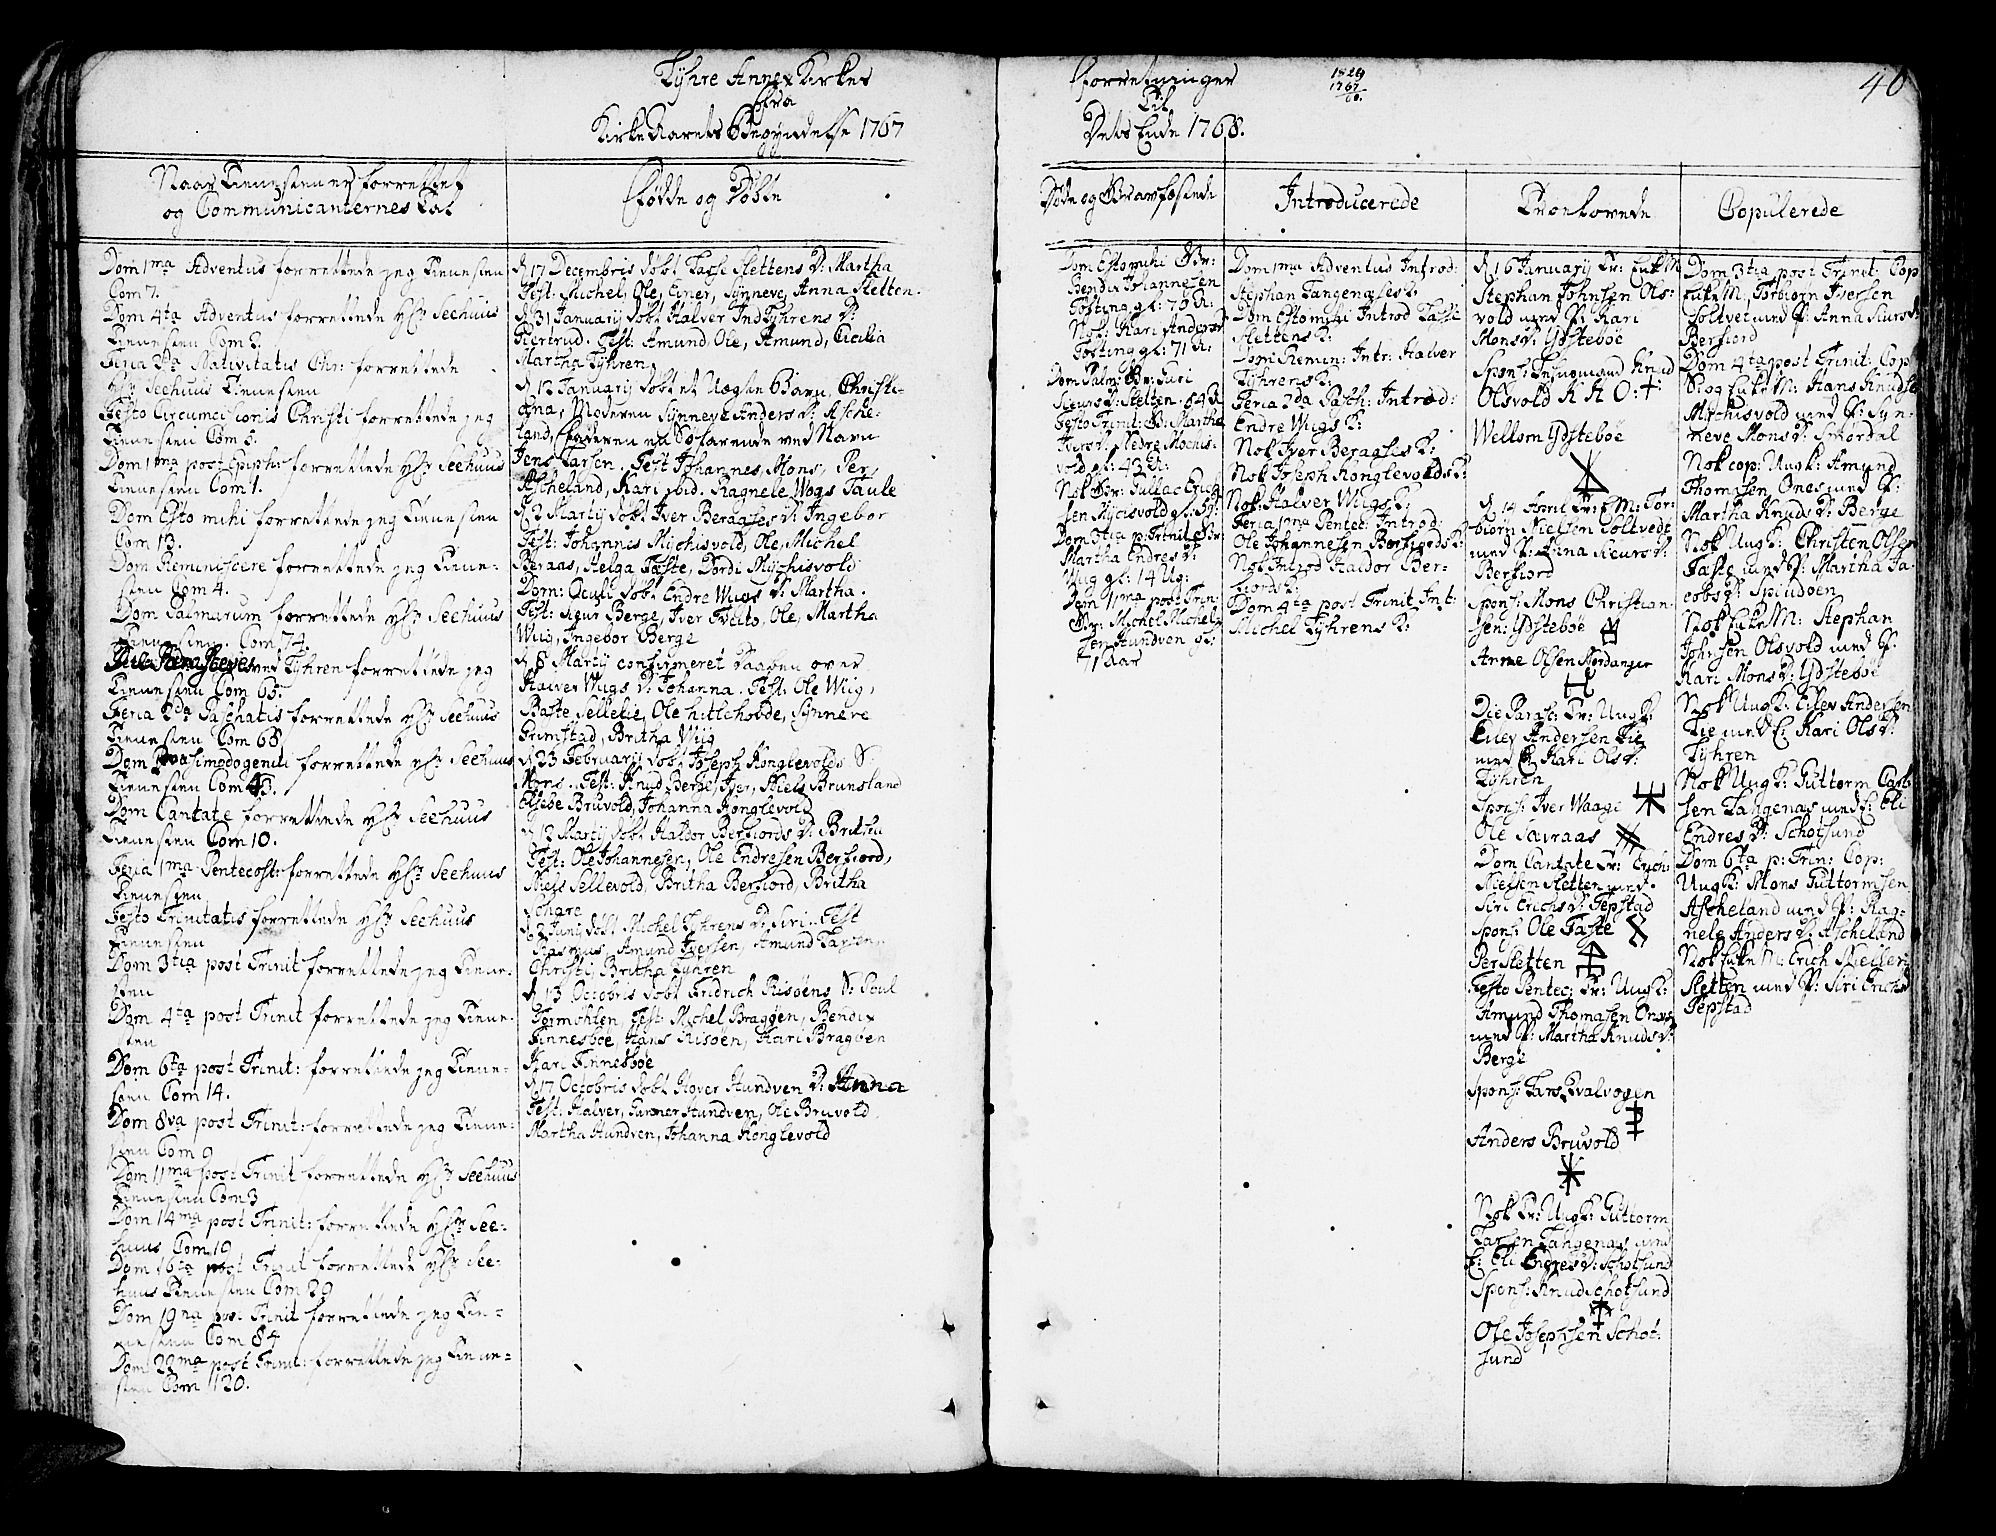 Tyhre Annex Kirkes
fra
Kirke Aarets Begyndelse 1767
Naar Tienesten er forrettet
og Communicanternes Tal
Fødde og Døbte
Dom 1ma Adventus forrettede jeg Tienesten
Com 7.
Dom 4ta Adventus forrettede Hr Seehuus
Tienesten Com 6.
Feria 2da Nativitatis Chr: forrettede
Hr Seehuus Tienesten
Festo Circumcisionis Christi forrettede jeg
Tienesten Com 5.
Dom 1ma post Epiph: forrettede Hr Seehuus
Tienesten Com 1.
Dom Esto mihi forrettede jeg Tienesten
Com 13.
Dom Reminiscere forrettede jeg Tiene-
sten Com 4.
Dom Palmarum forrettede Hr Seehuus
Tienesten. Com 74
ved Tyhren forrettede jeg
Tienesten Com 65.
Feria 2da Paschatis forrettede Hr Seehuus
Tienesten Com 68
Dom Quasimodogeniti forrettede Hr Seehuus
Tienesten Com 43.
Dom Cantate forrettede Hr Seehuus
Tienesten Com 10.
Feria 1ma Pentecost: forrettede Hr Seehuus
Tienesten
Festo Trinitatis forrettede Hr Seehuus
Tienesten
Dom 3tia post Trinit forrettede jeg Tiene-
sten
Dom 4ta post Trinit forrettede jeg Tiene-
sten
Dom 6ta post Trinit: forrettede jeg Tiene-
sten Com 14.
Dom 8va post Trinit: forrettede jeg Tiene-
sten Com 9
Dom 11ma post Trinit forrettede Hr Seehuus
Tienesten Com 3
Dom 14ma post Trinit: forrettede Hr See-
huus Com 19
Dom 16ta post Trinit forrettede Hr See-
huus Tienesten Com 29
Dom 19na post Trinit forrettede jeg Tie-
nesten Com 84
Dom 22ma post Trinit: forrettede jeg Tiene-
sten Com 120.
d 17 Decembris døbt Lasse Slettens D: Martha
Test: Michel, Ole, Einer, Synneve, Anna Sletten.
d 31 January døbt Halver Ind Tyhrens D:
Giertrud. Test: Amund, Ole, Amund, Cicilia
Martha Tyhren
d 12 January døbt et Uægte Barn, Christi-
ana, Moderen Synneve Anders D: Asche-
land, Faderen en Søfarende ved Navn
Jens Larsen. Test Johannes, Mons, Per,
Ascheland, Kari ibid. Ragnele Wogs Taule
d 2 Martij døbt Iver Beraases D: Ingebor
Test: Johannes Mychisvold, Ole, Michel
Beraas, Helga Taste, Dordi Mychisvold
Dom: Oculi døbt Endre Wiigs D: Martha.
Test: Sigur Berge, Iver Tveito, Ole, Martha
Wiig, Ingebor Berge
d 8 Martij confirmeret Daaben over
Halver Wiigs D: Johanna. Test: Ole Wiig,
Baste Sellevie, Ole hitlehovde, Synneve
Grimstad, Britha Wiig
d 23 February døbt Joseph Konglevolds S:
Mons. Test: Knud Berge, Iver, Niels Brunsland
Elsebe Bruvold, Johanna Konglevold
d 12 Martij døbt Haldor Berfiords D: Britha
Test: Ole Johannesen, Ole Endresen Berfiord,
Niels Sellevold, Britha Berfiord, Britha
Schare
d 2 Junij døbt Michel Tyhrens D: Siri. Test
Rasmus, Amund Iversen, Amund Larsen,
Christi, Britha Tyhren
d 13 Octobris døbt Fridrich Risøens S: Poul
Tormøhlen, Test: Michel Braggen, Bendix
Finnesbøe, Hans Risøen, Kari Bragøen
Kari Finnesbøe
d 17 Octobris døbt Hover Hundven D: Anna
Test: Halver, Garner Hundven, Ole Bruvold
Martha Hundven, Johanna Konglevold
Forretninger
Til
Dets Ende 1768.
1829
1767
60.
40
Døde og Gravfæstede
Introducerede
Troelovede
Copulerede
Dom Estomihi Gr:
Bendix Johannesen
Fosting gl: 70 A:
Nok: Kari Andersd
Fosting gl: 71 A:
Dom Palm: Gr: Guri
Sieurs D: Sletten. 64 A
Festo Trinit: Gr: Martha
Ivers D: Nedre Mochis-
vold gl: 43 A:
Nok Gr: Gullac Erich
sen Mycisvold gl: 
Dom 3tia p: Trinit Gr:
Martha Endres D:
Wiig gl: 14 Ug:
Dom 11ma post Trin:
Gr: Michel Michel-
sen Hundven gl:
71 aar
Dom 1ma Adventus Introd:
Stephan Tangenæses K:
Dom Estomihi Introd Lasse
Slettens K:
Dom: Remin: Intr: Halver
Tyhrens K:
Feria 2da Pasch: Introd:
Endre Wiigs K:
Nok Iver Beraases K:
Nok Joseph Konglevolds K:
Nok Halver Wiigs K:
Feria 1ma Pentec: Introd:
Ole Johannesen Berfiords K:
Nok Introd Haldor Ber-
fiords K:
Dom 4ta post Trinit Int:
Michel Tyhrens K:
d 16 January Tr: Enke M
Stephan Johnsen Ols-
vold med P: Kari
Mons D: Ydstebøe
Spons: Knud
Olsvold K H O: +
Wellom Ydstebøe
d 14 April Tr: E M: Tor-
biørn Nielsen Toltvedt
med P: Anna Sieurs D:
Berfiord
Spons: Mons Christian-
sen: Ydstebøe
Anne Olsen Nordanger
Die Paras: Tr: Ung K:
Eilev Andersen Lie
med P Kari Ols D:
Tyhren
Spons: Iver Waage
Ole Savraas
Dom Cantate Tr: Erich
Nielsen Sletten med
Siri Erichs D: Fepstad
Spons Ole Taste
Per Sletten
Festo Pentec: Tr: Ung K:
Amund Thomasen Ones
med P: Martha Knuds D:
Berge
Spons: Lars Kvalvogen
Anders Bruvold
Nok Tr: Ung K: Guttorm
Larsen Tangenæs med
P: Eli Endres D: Schotsund
Spons: Knud Schotsund
Ole Josephsen Schot-
sund
Dom 3tia post Trinit: Cop
Enke M, Torbiørn Iversen
Toltvet med P: Anna Siurs D:
Berfiord
Dom 4ta post Trinit: Cop
S: og Enke M: Hans Knudse
Mychisvold med P: Syn-
neve Mons D: Smørdal
Nok cop: Ung K: Amund
Thomasen Ones med P:
Martha Knuds D: Berge
Nok Ung K: Christen Olsen
Taste med P: Martha Ja-
cobs D: Spildøen
Nok Enke M: Stephan
Johnsen Olsvold med P:
Kari Mons D: Ydstebøe
Nok Ung K: Eilev Andersen
Lie med P: Kari Ols D:
Tyhren
Nok Ung K: Guttorm Lar-
sen Tangenæs med P: Eli
Endres D: Schotsund
Dom 6ta p: Trin: Cop:
Ung K: Mons Guttormsen
Ascheland med P: Rag-
nele Anders D: Ascheland
Nok Enke M: Erich Nielsen
Sletten med P: Siri Erichs D
Fepstad